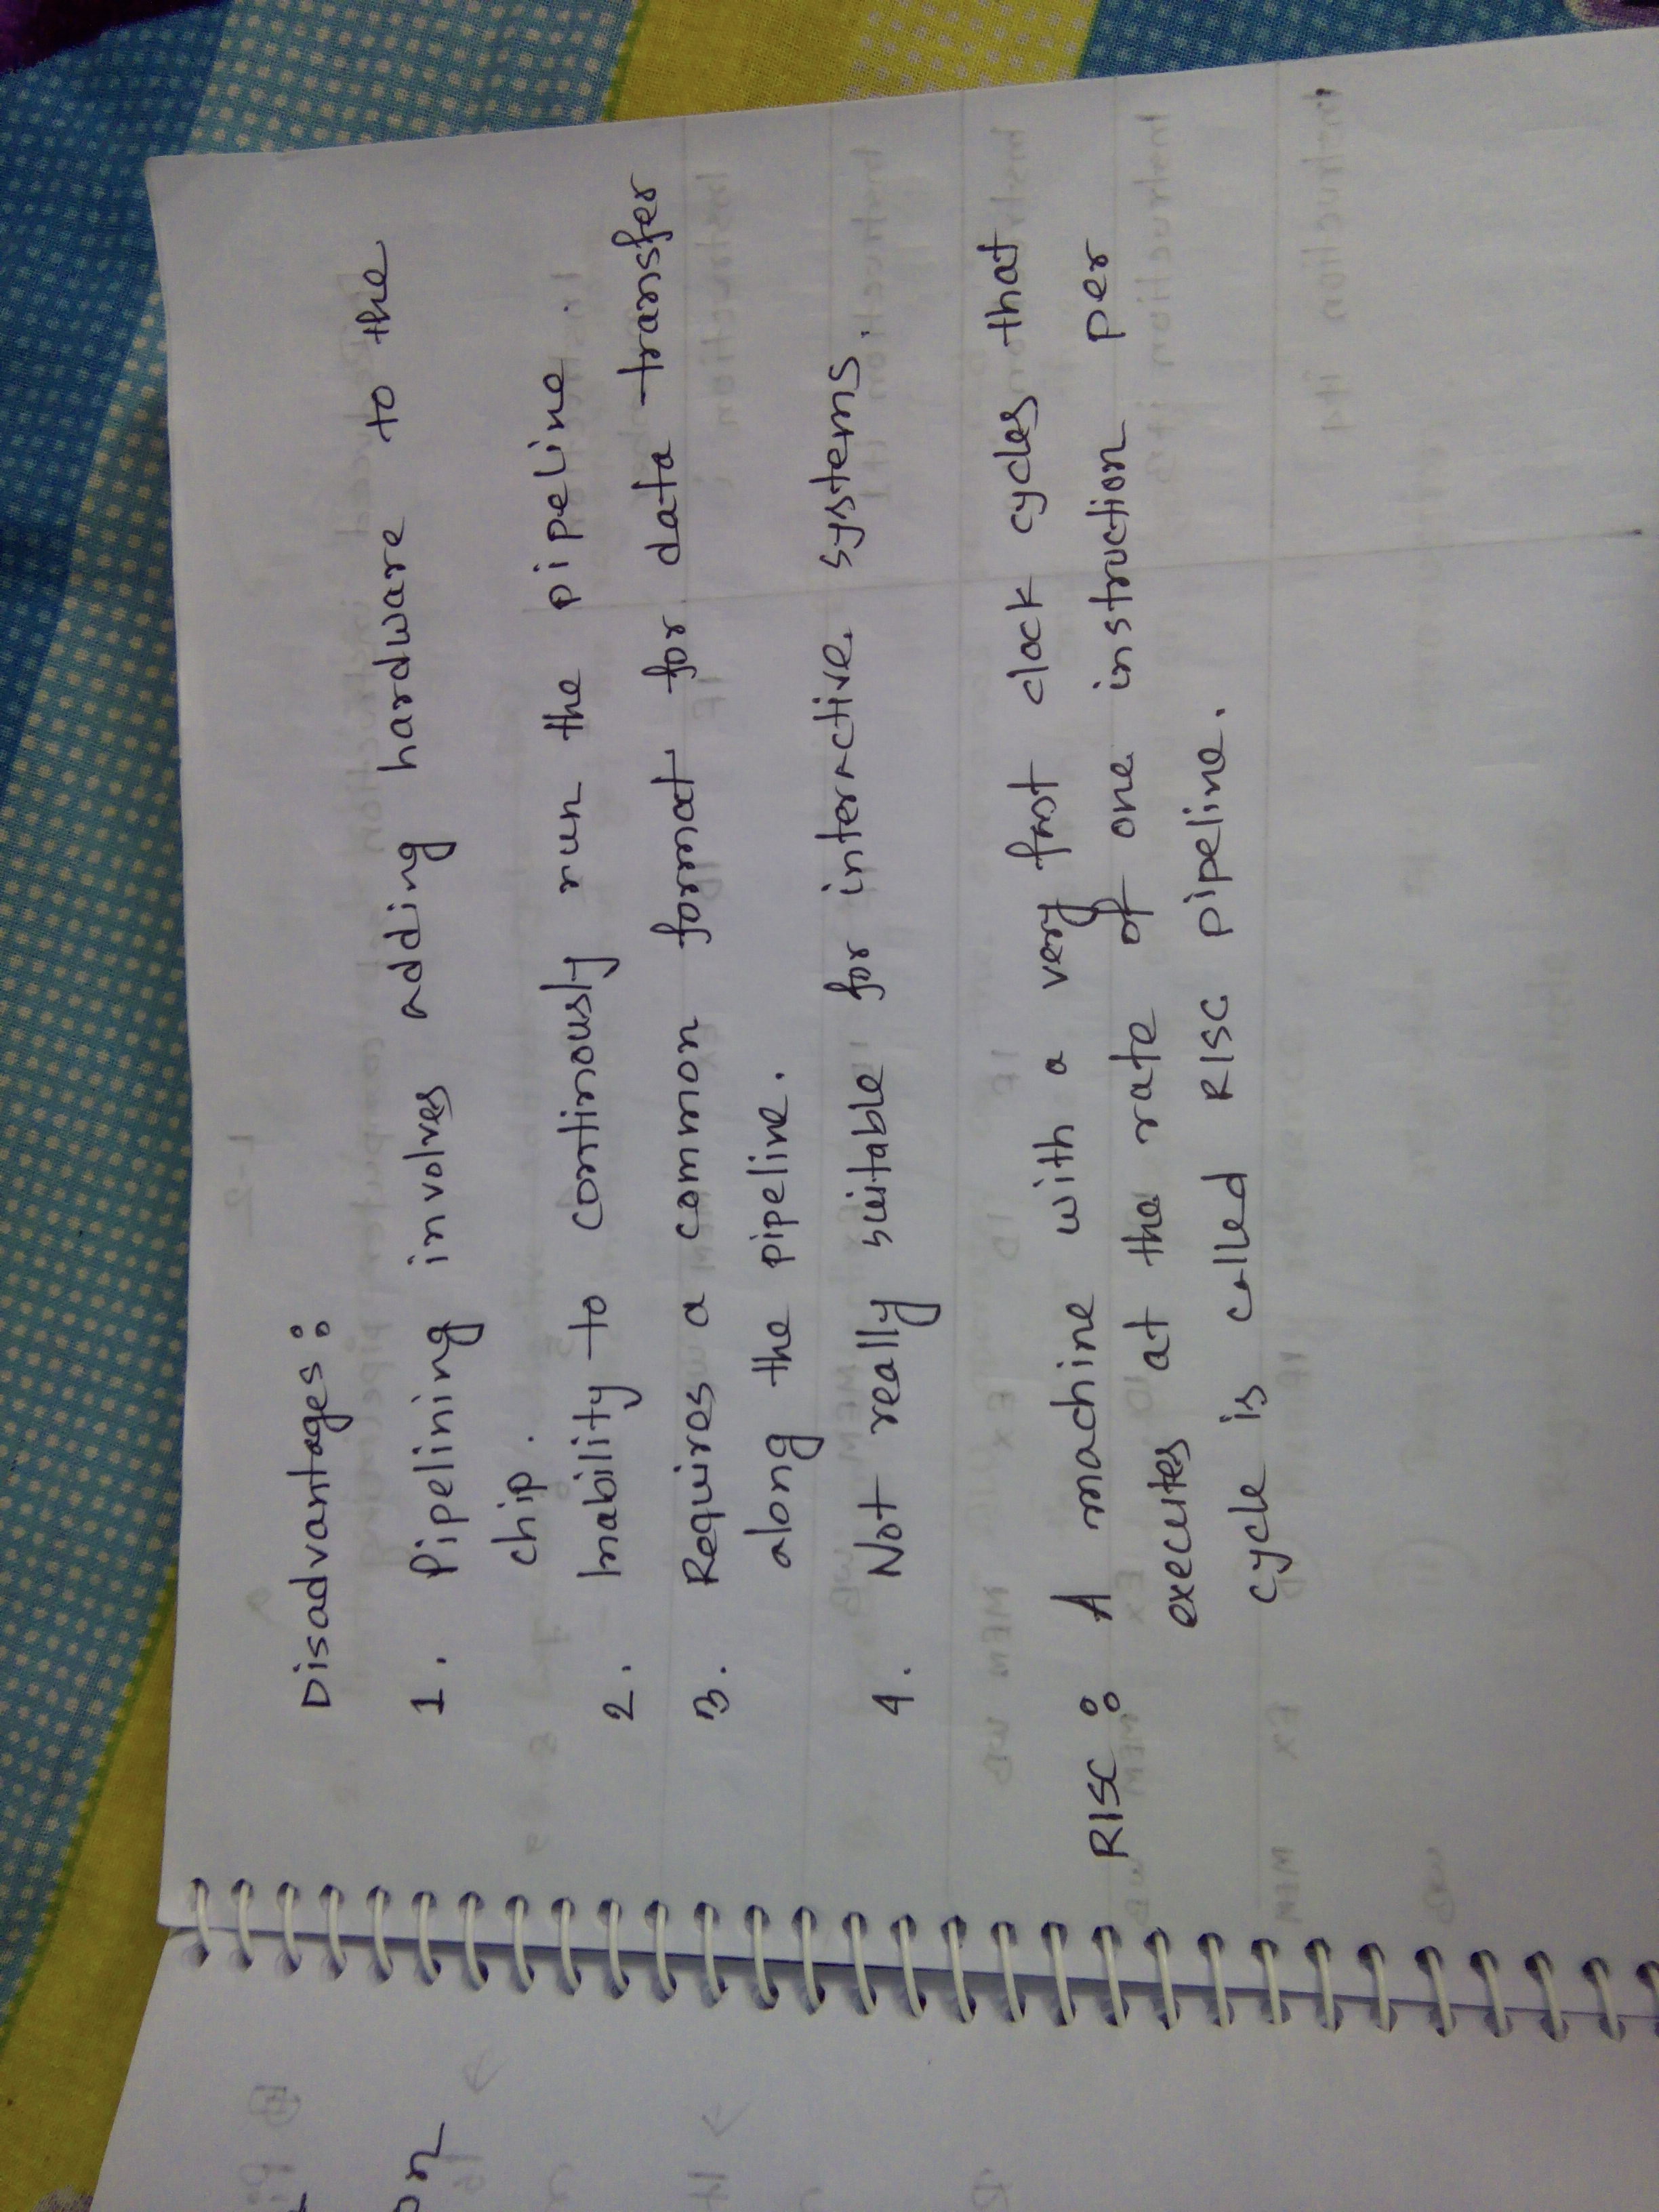 Disadvantages :
1. Pipelining involves adding hardware to the
chip.
2. Inability to continously run the pipeline.
3. Requires a common format for data transfer
along the pipeline.
4. Not really suitable for interactive systems.
RISC : A machine with a very fast clock cycles that
executes at the rate of one instruction per
cycle is called RISC pipeline.